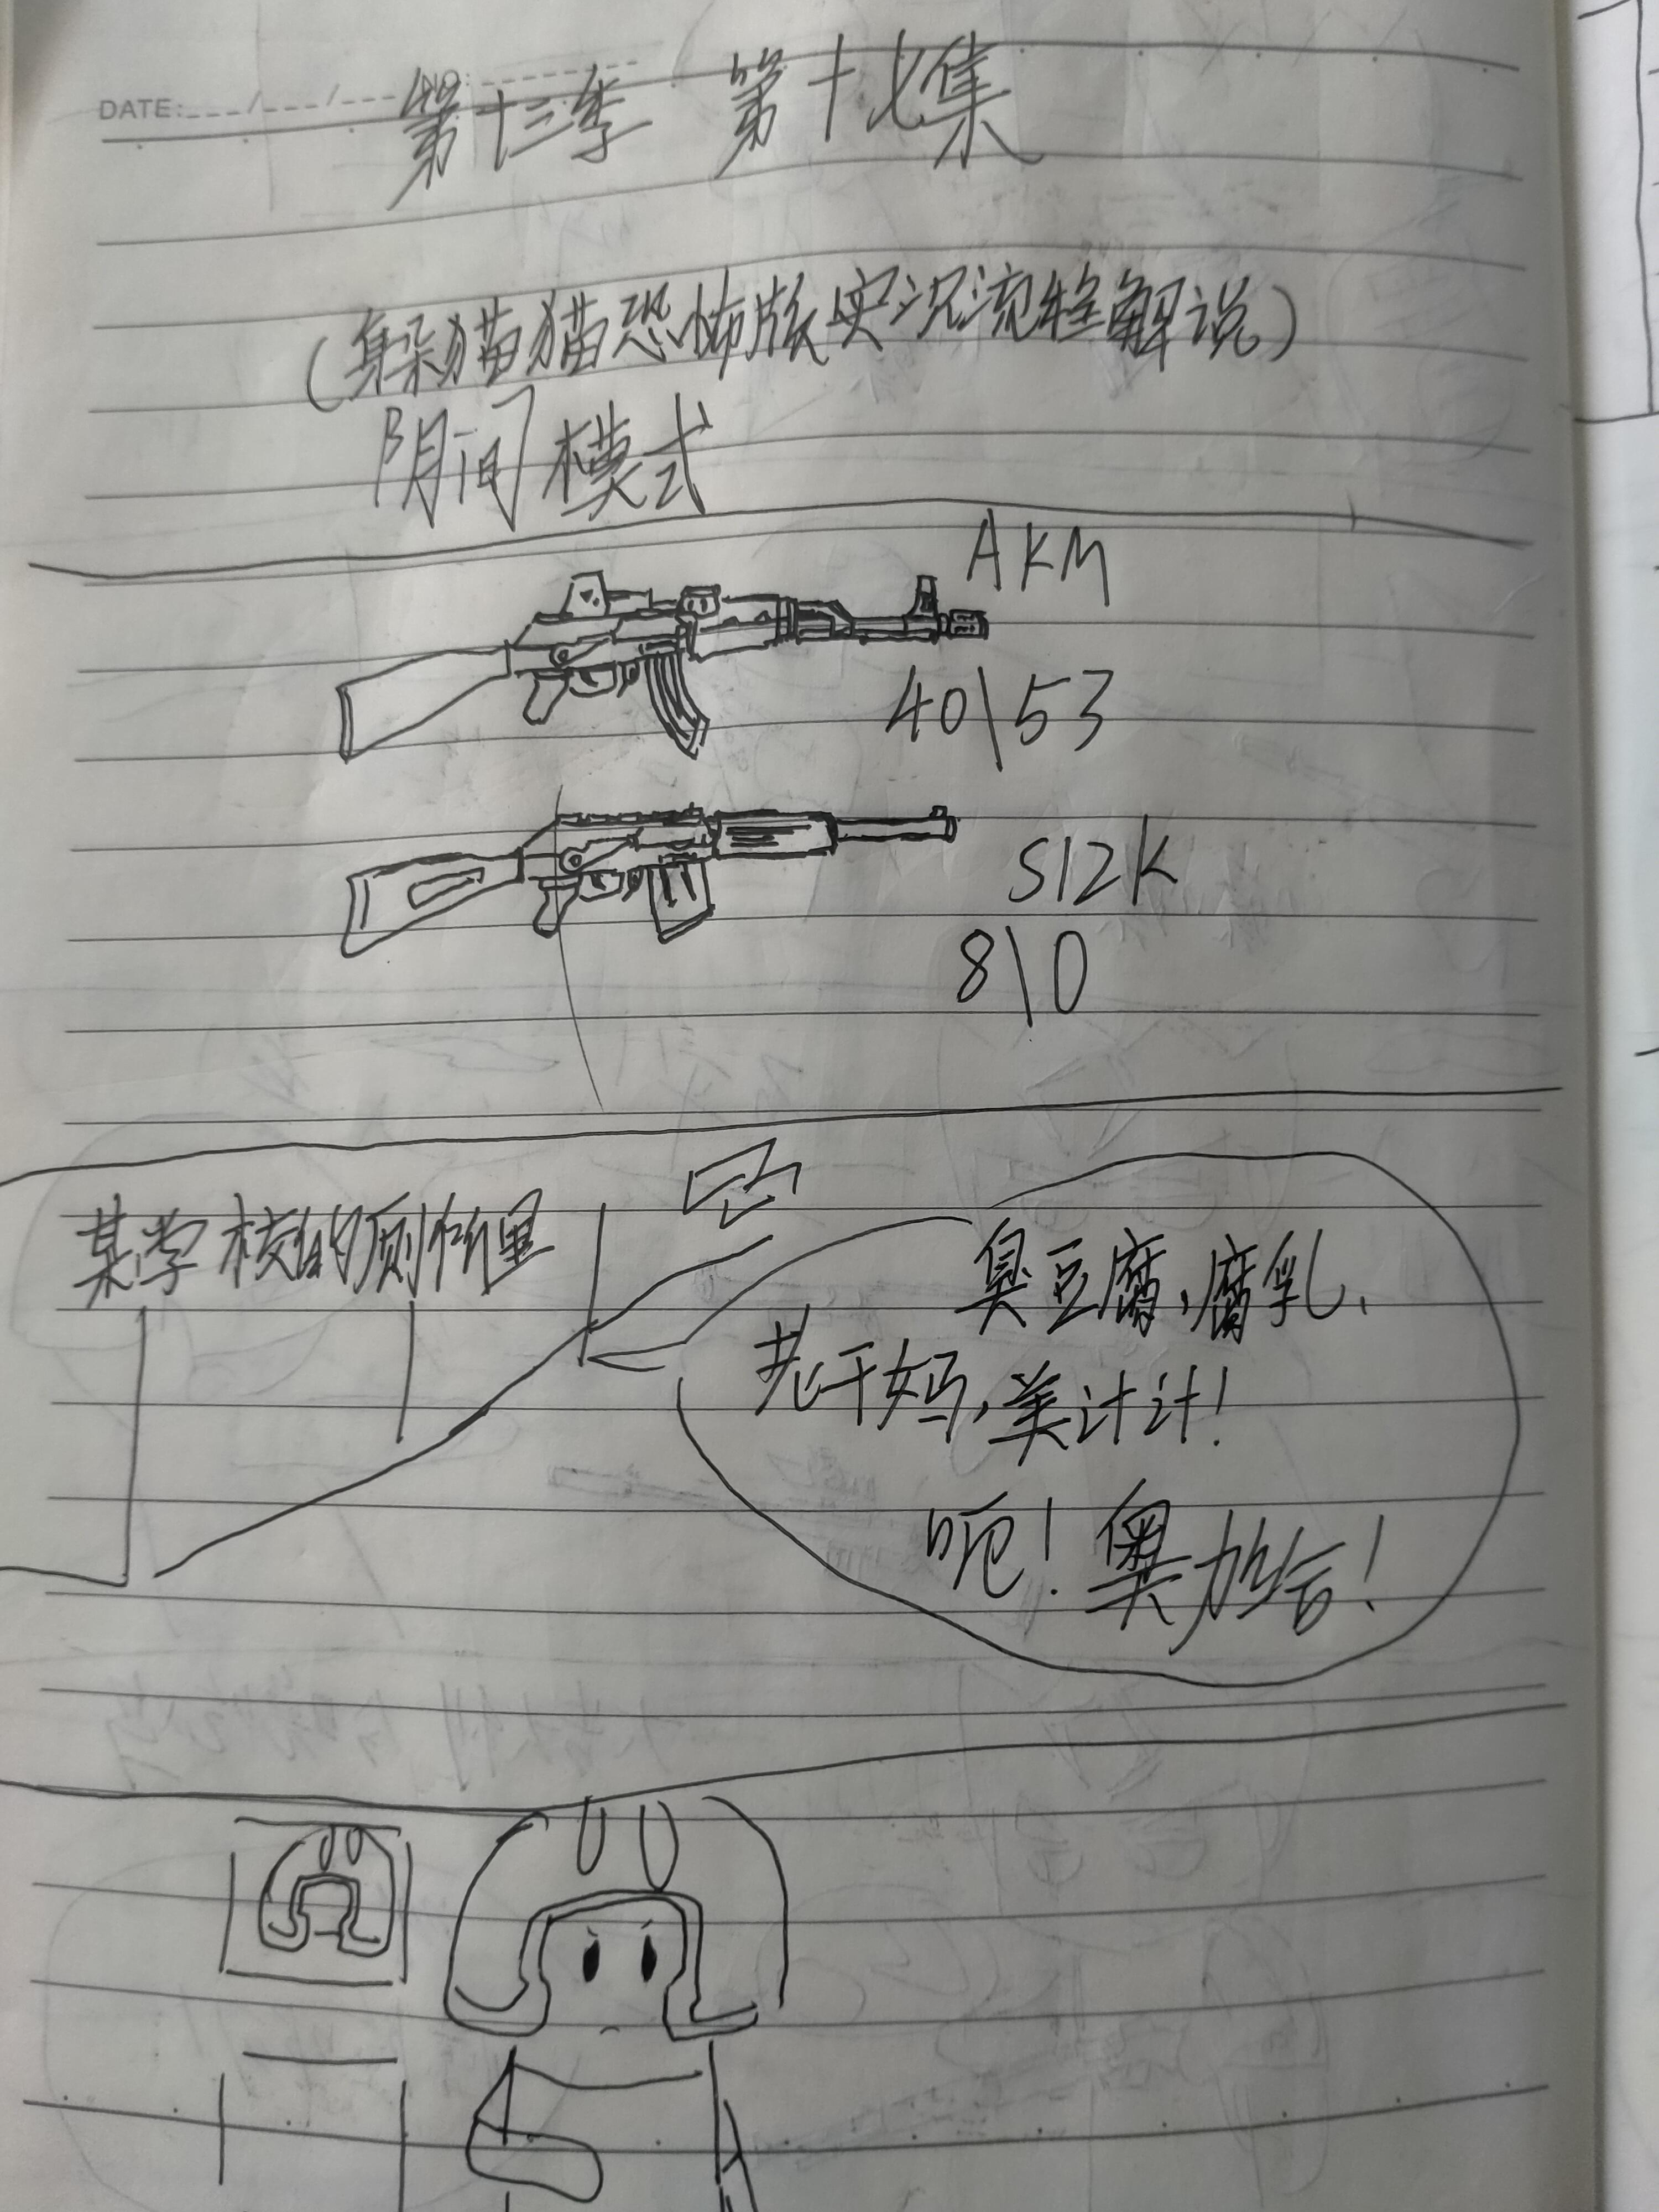 DATE: NO:
第十三季 第十七集
(躲猫猫恐怖版实况流程解说)
阴间模式
AKM
40\53
S12K
8\0
某学校的厕所里
臭豆腐、腐乳、
老干妈,美汁汁!
呃!奥力给!